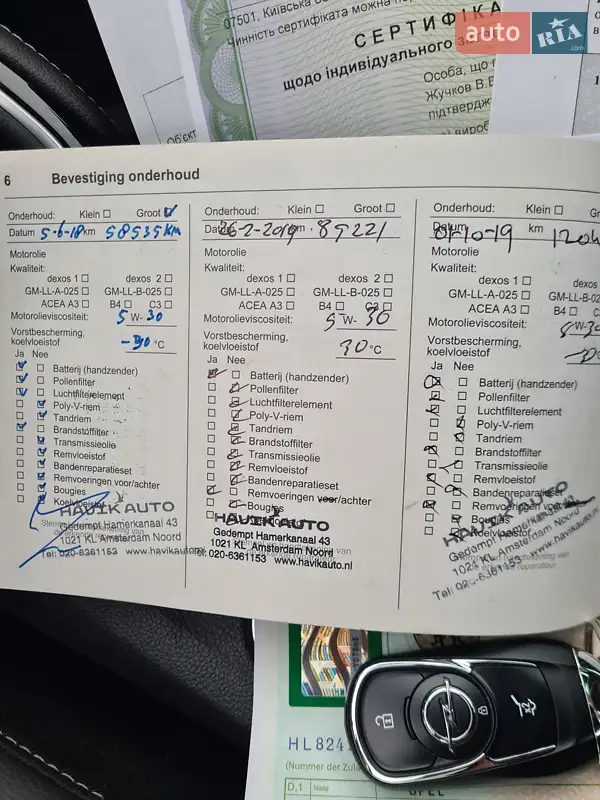 07501, Київська
Чинність сертифіката можна
СЕРТИФІКА
щодо індивідуального
Особа, що
Жучков В.В
підтвердж
вироб
Об'єкт
auto RIA.com
6 Bevestiging onderhoud
Onderhoud: Klein Groot
Datum 5-6-18 km 58535 KM
Motorolie
Kwaliteit:
dexos 1 dexos 2
GM-LL-A-025 GM-LL-B-025
ACEA A3 B4 C3
Motorolieviscositeit: 5 W- 30
Vorstbescherming,
koelvloeistof -30 °C
Ja Nee
Batterij (handzender)
Pollenfilter
Luchtfilterelement
Poly-V-riem
Tandriem
Brandstoffilter
Transmissieolie
Remvloeistof
Bandenreparatieset
Remvoeringen voor/achter
Bougies
Koelvloeistof
HAVIK AUTO
Gedempt Hamerkanaal 43
1021 KL Amsterdam Noord
Tel: 020-6361153 www.havikauto.nl
Onderhoud: Klein Groot
Datum 26-2-2019 km 85221
Motorolie
Kwaliteit:
dexos 1 dexos 2
GM-LL-A-025 GM-LL-B-025
ACEA A3 B4 C3
Motorolieviscositeit: 5 W- 30
Vorstbescherming,
koelvloeistof 30 °C
Ja Nee
Batterij (handzender)
Pollenfilter
Luchtfilterelement
Poly-V-riem
Tandriem
Brandstoffilter
Transmissieolie
Remvloeistof
Bandenreparatieset
Remvoeringen voor/achter
Bougies
HAVIK AUTO
Gedempt Hamerkanaal 43
1021 KL Amsterdam Noord
Tel: 020-6361153 www.havikauto.nl
Onderhoud: Klein
Datum 01-10-19 km
Motorolie
Kwaliteit:
dexos 1
GM-LL-A-025 GM-LL-B-025
ACEA A3 B4 C3
Motorolieviscositeit: 5W-30
Vorstbescherming,
koelvloeistof
Ja Nee
Batterij (handzender)
Pollenfilter
Luchtfilterelement
Poly-V-riem
Tandriem
Brandstoffilter
Transmissieolie
Remvloeistof
Bandenreparatieset
Remvoeringen
Bougies
Koelvloeistof
HAVIK AUTO
Gedempt Hamerkanaal 43
1021 KL Amsterdam Noord
Tel: 020-6361153 www.havikauto.nl
HL824
(Nummer der Zula
D.1 Marke OPEL
x2